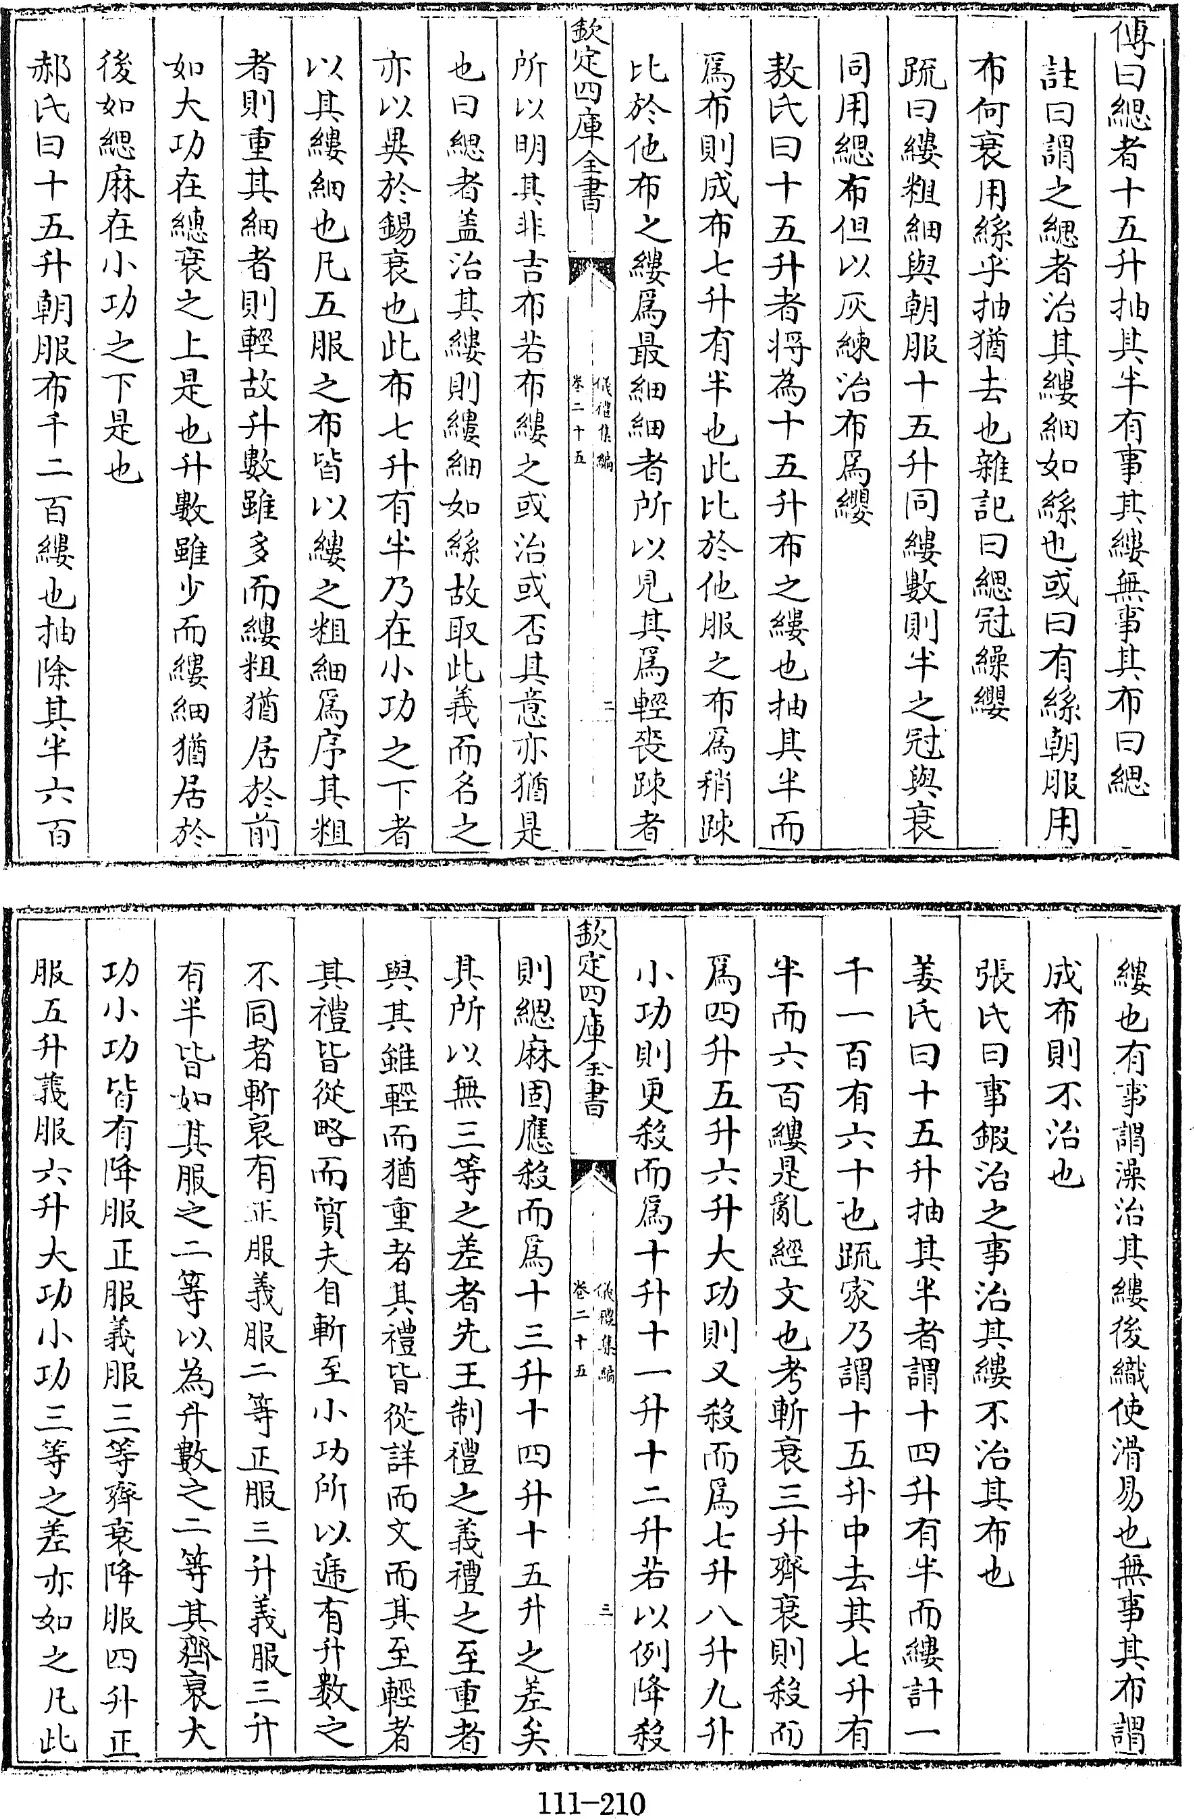 傳曰緦者十五升抽其半有事其縷無事其布曰緦
註曰謂之緦者治其縷細如絲也或曰有絲朝服用
布何衰用絲乎抽猶去也雜記曰緦冠繰纓
疏曰縷粗細與朝服十五升同縷數則半之冠與衰
同用緦布但以灰練治布爲纓
敖氏曰十五升者將為十五升布之縷也抽其半而
爲布則成布七升有半也此比於他服之布爲稍踈
比於他布之縷爲最細細者所以見其爲輕喪踈者
欽定四庫全書
儀禮集編
卷二十五
二
所以明其非吉布若布縷之或治或否其意亦猶是
也曰緦者盖治其縷則縷細如絲故取此義而名之
亦以異於錫衰也此布七升有半乃在小功之下者
以其縷細也凡五服之布皆以縷之粗細爲序其粗
者則重其細者則輕故升數雖多而縷粗猶居於前
如大功在繐衰之上是也升數雖少而縷細猶居於
後如緦麻在小功之下是也
郝氏曰十五升朝服布千二百縷也抽除其半六百
縷也有事謂澡治其縷後織使滑易也無事其布謂
成布則不治也
張氏曰事鍜治之事治其縷不治其布也
姜氏曰十五升抽其半者謂十四升有半而縷計一
千一百有六十也疏家乃謂十五升中去其七升有
半而六百縷是亂經文也考斬衰三升齊衰則殺而
爲四升五升六升大功則又殺而爲七升八升九升
小功則更殺而爲十升十一升十二升若以例降殺
欽定四庫全書
儀禮集編
卷二十五
三
則緦麻固應殺而爲十三升十四升十五升之差矣
其所以無三等之差者先王制禮之義禮之至重者
與其雖輕而猶重者其禮皆從詳而文而其至輕者
其禮皆從略而質夫自斬至小功所以遞有升數之
不同者斬衰有正服義服二等正服三升義服三升
有半皆如其服之二等以為升數之二等其齊衰大
功小功皆有降服正服義服三等齊衰降服四升正
服五升義服六升大功小功三等之差亦如之凡此
111-210